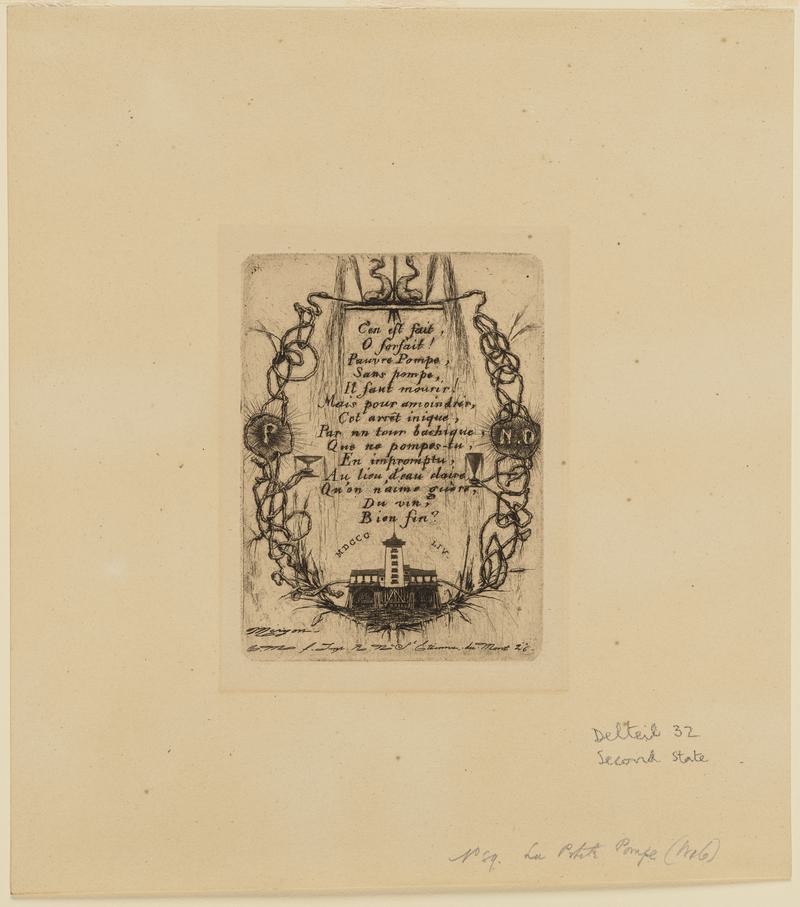 C'en est fait,
O forfait!
Pauvre Pompe,
Sans pompe,
Il faut mourir!
Mais pour amoindrir,
Cet arrêt inique,
Par un tour bachique,
Que ne pompes-tu,
En impromptu,
Au lieu d'eau claire
Qu'on n'aime guère,
Du vin,
Bien fin?
P
N.D
MDCCC LIV.
Meryon
R. N. St Etienne du Mont 26.
Delteil 32
Second State
No 89. La Petite Pompe